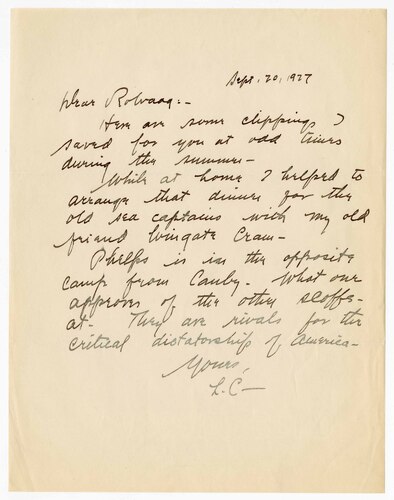 Sept. 20, 1927
Dear Rolvaag:-
Here are some clippings I
saved for you at odd times
during the summer-
While at home I helped to
arrange that dinner for the
old sea captains with my old
friend Wingate Cram-
Phelps is in the opposite
camp from Canby. What one
approves of the other scoffs-
at. They are rivals for the
critical dictatorship of America-
Yours,
L.C-